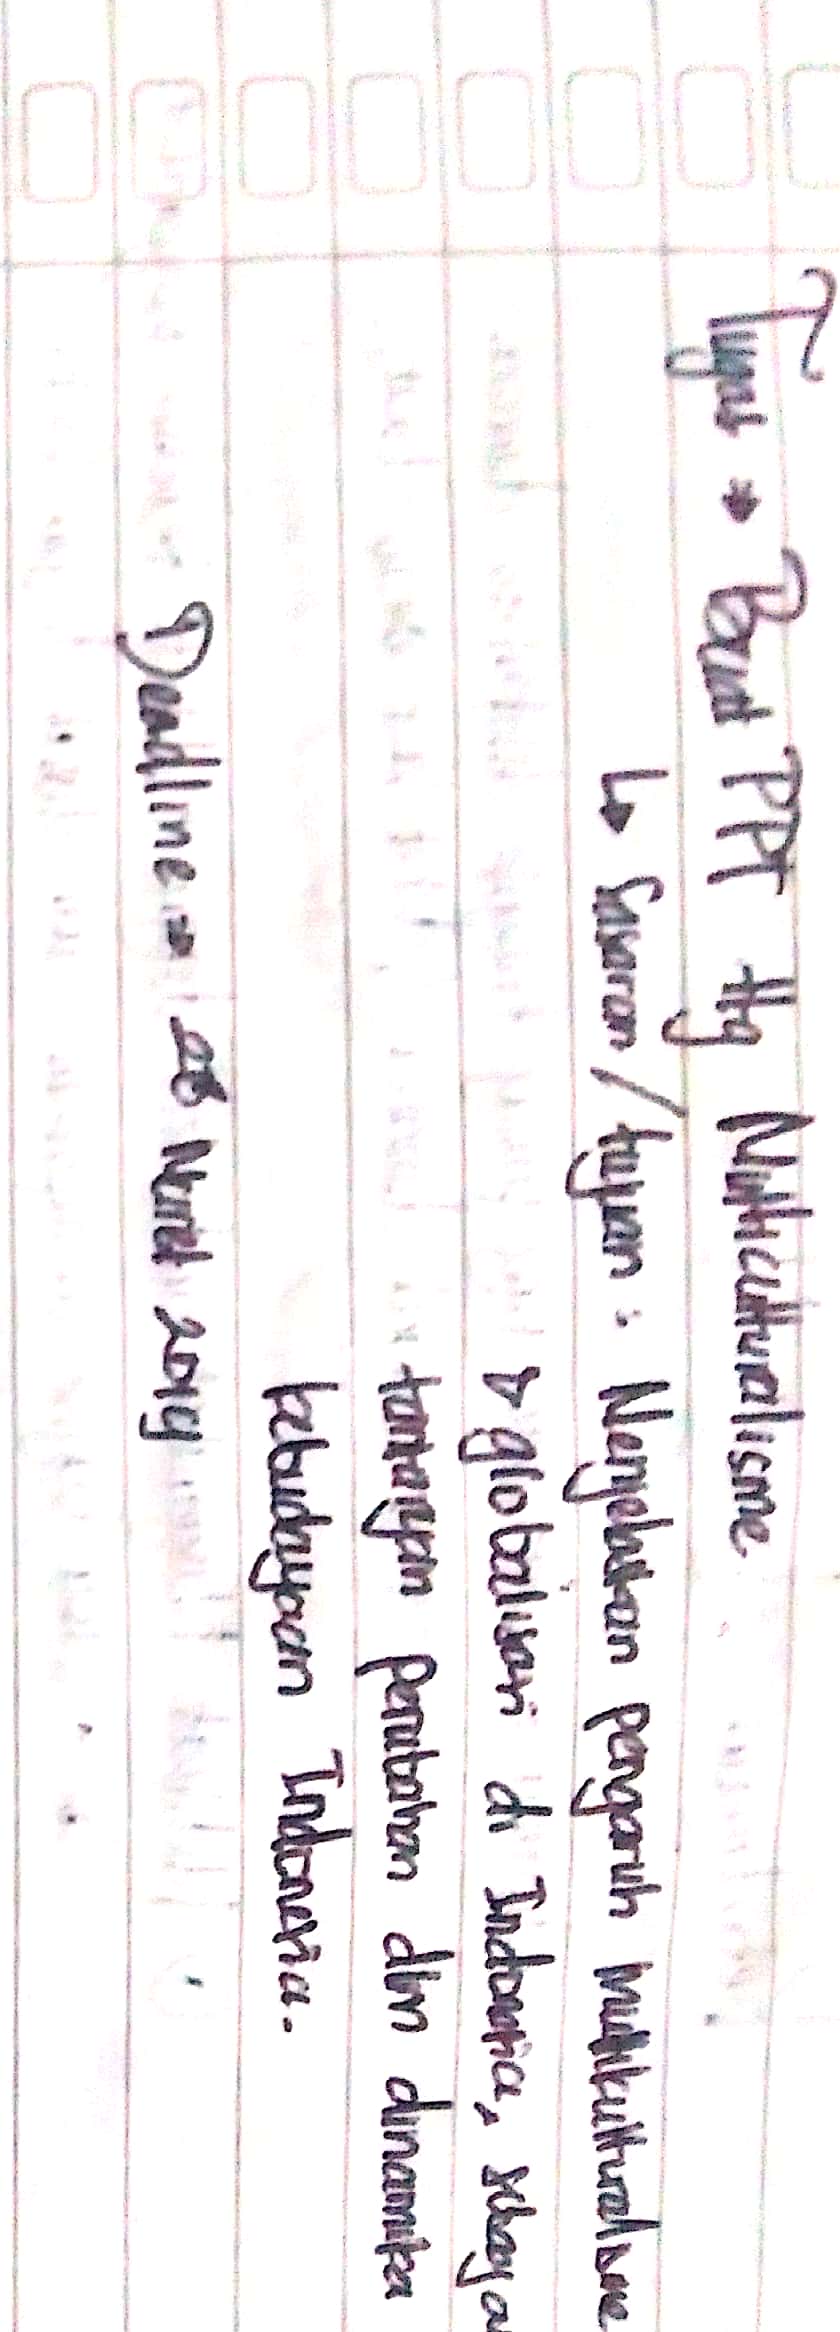 Tugas → Buat PPT ttg Multiculturalisme
↳ Sasaran / tujuan : Menjelaskan pengaruh multikulturalisme
& globalisasi di Indonesia, sebaga
tantangan perubahan dlm dinamika
kebudayaan Indonesia.
Deadline → 28 Maret 2019